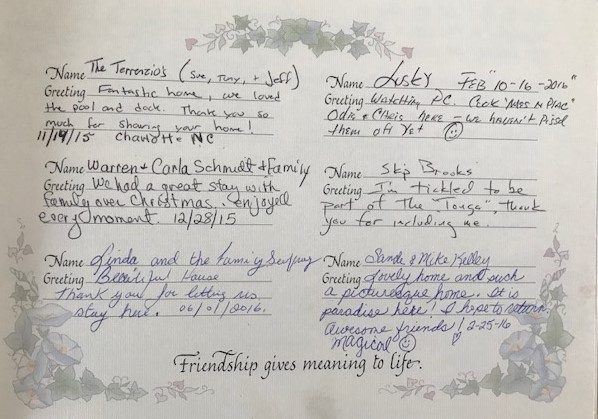 Name The Terrenzio's (Sue, Tony, + Jeff)
Greeting Fantastic home, we loved
the pool and dock. Thank you so
much for sharing your home!
11/19/15 Charlotte NC
Name Warren + Carla Schmidt & Family
Greeting We had a great stay with
family over Christmas. enjoyed
every moment. 12/28/15
Name Linda and the Family
Greeting Beautiful House
Thank you for letting us
stay here. 06/01/2016.
Name Lusky FEB "10-16-2016"
Greeting DC.
Odie + Chris here - we haven't pissed
them off yet
Name Skip Brooks
Greeting I'm tickled to be
part of the "Tonga", thank
you for including me.
Name Sande & Mike Kelley
Greeting Lovely home and such
a picturesque home. It is
paradise here! I hope to return
Awesome friends! 2-25-16
Magical
Friendship gives meaning to life.